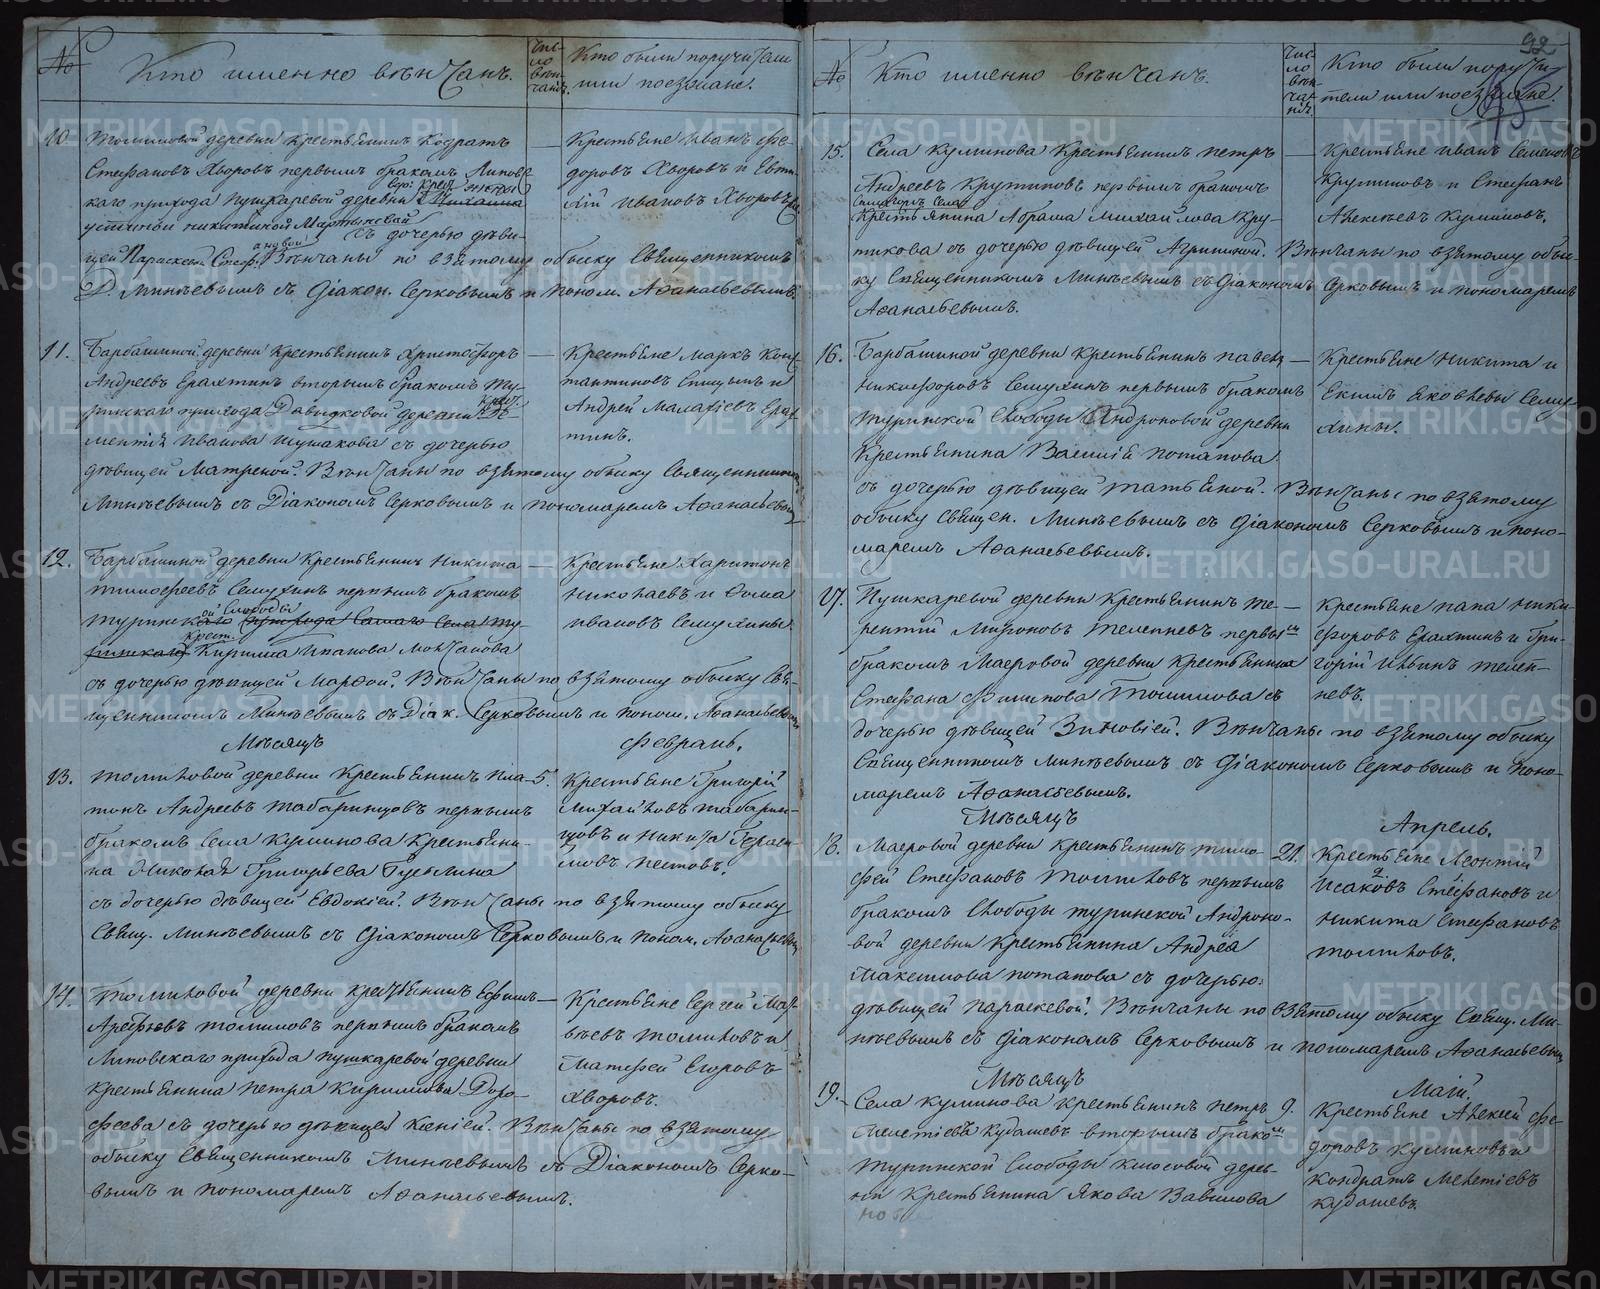 №
Кто именно вѣнчанъ.
Чис-
ло
вѣн-
чанія.
Кто были поручители
или поезжане.
10. Томиловой деревни крестьянинъ Кодратъ
Стефановъ Хворовъ первымъ бракомъ Липов-
скаго прихода Пушкаревой деревни
съ дочерью дѣви-
цей Параскевой Вѣнчаны по взятому обыску Священникомъ
Д. Минѣевымъ съ Діакон. Серковымъ и поном. Аѳанасьевымъ.
—
Крестьяне Иванъ Ѳе-
доровъ Хворовъ и Евти-
хій Ивановъ Хворовъ
11. Барбашиной деревни крестьянинъ Христофоръ
Андреевъ Ерахтинъ вторымъ бракомъ Ту-
ринскаго прихода Давыдковой деревни крест.
Ивановa Шушакова съ дочерью
дѣвицей Матреной. Вѣнчаны по взятому обыску Священникомъ
Минѣевымъ съ Діакономъ Серковымъ и пономаремъ Аѳанасьевымъ
—
Крестьяне Маркъ Конс
тантиновъ Спицынъ и
Андрей Малахіевъ Ерах
тинъ.
12. Барбашиной деревни крестьянинъ Никита
Тимофеевъ Семухинъ первымъ бракомъ
Туринской Слободы
крест. Кирилла Иванова Молчанова
съ дочерью дѣвицей Марѳой. Вѣнчаны по взятому обыску Свя-
щенникомъ Минѣевымъ съ Діак. Серковымъ и поном. Аѳанасьевымъ
—
Крестьяне Харитонъ
Николаевъ и Ѳома
Ивановъ Семухины.
Мѣсяцъ Февраль.
13. Томиловой деревни крестьянинъ Пла-
тонъ Андреевъ Табаринцовъ первымъ
бракомъ Села Куминова крестьяни-
на Николая Григорьева Гуськина
съ дочерью дѣвицей Евдокіей. Вѣнчаны по взятому обыску
Свящ. Минѣевымъ съ Діакономъ Серковымъ и поном. Аѳанасьевым
5.
Крестьяне Григорій
Михайловъ Табарин-
цовъ и Никита Гераси-
мовъ Пестовъ.
14. Томиловой деревни крестьянинъ Ефимъ
Арефьевъ Томиловъ первымъ бракомъ
Липовскаго прихода Пушкаревой деревни
крестьянина Петра Кириллова Доро-
феева съ дочерью дѣвицей Ксеніей. Вѣнчаны по взятому
обыску Священникомъ Минѣевымъ съ Діакономъ Серко-
вымъ и пономаремъ Аѳанасьевымъ.
—
Крестьяне Сергей Мат-
вѣевъ Томиловъ и
Матфей Егоровъ
Хворовъ.
92
№
Кто именно вѣнчанъ.
Чис-
ло
вѣн-
ча-
нія.
Кто были поручи-
тели или поезжане.
15. Села Куминова крестьянинъ Петръ
Андреевъ Крутиковъ первымъ бракомъ
крестьянина Абрама Михайлова Кру-
тикова съ дочерью дѣвицей Агрипиной. Вѣнчаны по взятому обыс-
ку Священникомъ Минѣевымъ съ Діакономъ Серковымъ и пономаремъ
Аѳанасьевымъ.
—
Крестьяне Иванъ Семеновъ
Куминовъ и Стефанъ
Алексѣевъ Куминовъ.
16. Барбашиной деревни крестьянинъ Павелъ
Никифоровъ Семухинъ первымъ бракомъ
Туринской Слободы Андроновой деревни
крестьянина Василія Потапова
съ дочерью дѣвицей Татьяной. Вѣнчаны по взятому
обыску Священ. Минѣевымъ съ Діакономъ Серковымъ и поно-
маремъ Аѳанасьевымъ.
—
Крестьяне Никита и
Екимъ Яковлевы Сему
хины.
17. Пушкаревой деревни крестьянинъ Те-
рентій Мироновъ Телепневъ первымъ
бракомъ Маеровой деревни крестьянина
Стефана Филипова Томилова съ
дочерью дѣвицей Зиновіей. Вѣнчаны по взятому обыску
Священникомъ Минѣевымъ съ Діакономъ Серковымъ и поно-
маремъ Аѳанасьевымъ.
—
Крестьяне Папа Ники-
форовъ Ерахтинъ и Гри-
горій Ильинъ Телеп-
невъ.
Мѣсяцъ Апрель.
18. Маеровой деревни крестьянинъ Тимо
фей Стефановъ Томиловъ первымъ
бракомъ Слободы Туринской Андроно-
вой деревни крестьянина Андрея
Максимова Потапова съ дочерью
дѣвицей Параскевой. Вѣнчаны по взятому обыску Свящ. Ми-
нѣевымъ съ Діакономъ Серковымъ и пономаремъ Аѳанасьевым
21.
Крестьяне Леонтій
Исаковъ Стефановъ и
Никита Стефановъ
Томиловъ.
Мѣсяцъ Маій.
19. Села Куминова крестьянинъ Петръ
Мелетіевъ Кудашевъ вторымъ бракомъ
Туринской Слободы Класовой дерев-
ни крестьянина Якова Вавилова
9.
Крестьяне Алексій Ѳе-
доровъ Куминовъ и
Кондратъ Мелетіевъ
Кудашевъ.
METRIKI.GASO-URAL.RU